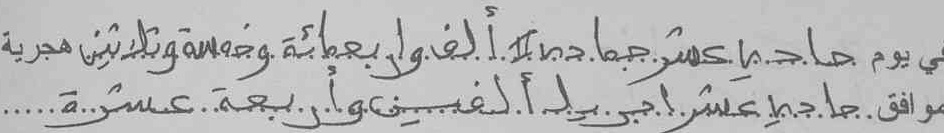 في يوم حادي عشر جمادى II ألف وأربعمائة وخمسة وثلاثين هجرية
موافق حادي عشر ابريل ألفين وأربعة عشرة .....